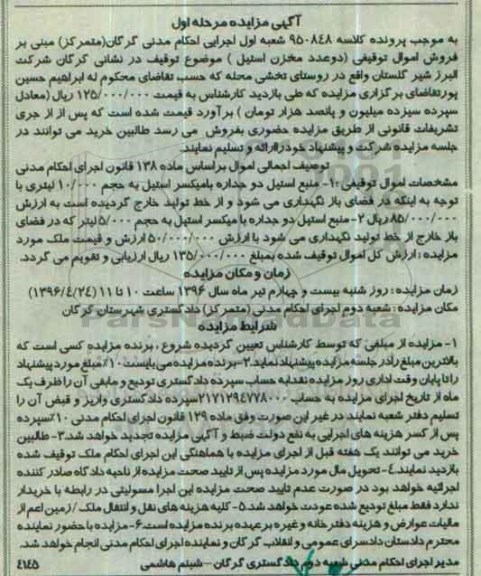 آگهی مزایده مرحله اول
به موجب پرونده کلاسه ۹۵۰۸۴۸ شعبه اول اجرایی احکام مدنی گرگان(متمرکز) مبنی بر
فروش اموال توقیفی (دوعدد مخزن استیل ) موضوع توقیف در نشانی گرگان شرکت
البرز شیر گلستان واقع در روستای تخشی محله که حسب تقاضای محکوم له ابراهیم حسین
پورتقاضای برگزاری مزایده که طی بازدید کارشناس به قیمت ۱۲۵/۰۰۰/۰۰۰ ریال (معادل
سپرده سیزده میلیون و پانصد هزار تومان ) برآورد قیمت شده است که پس از از جری
تشریفات قانونی از طریق مزایده حضوری بفروش می رسد طالبین خرید می توانند در
جلسه مزایده شرکت و پیشنهاد خودراارائه و تسلیم نمایند.
توصیف اجمالی اموال براساس ماده ۱۳۸ قانون اجرای احکام مدنی
مشخصات اموال توقیفی :۱- منبع استیل دو جداره بامیکسر استیل به حجم ۱۰/۰۰۰ لیتری با
توجه به اینکه در فضای باز نگهداری می شود و از خط تولید خارج گردیده است به ارزش
۸۵/۰۰۰/۰۰۰ریال ۲-منبع استیل دو جداره با میکسر استیل به حجم ۵/۰۰۰لیتر که در فضای
باز خارج از خط تولید نگهداری می شود با ارزش ۵۰/۰۰۰/۰۰۰ ارزش و قیمت ملک مورد
مزایده : ارزش کل اموال توقیف شده بمبلغ ۱۳۵/۰۰۰/۰۰۰ ریال ارزیابی و تقویم می گردد.
زمان و مکان مزایده
زمان مزایده : روز شنبه بیست و چهارم تیر ماه سال ۱۳۹۶ ساعت ۱۰ تا ۱۱ (۱۳۹۶/۴/۲۴)
مکان مزایده : شعبه دوم اجرای احکام مدنی (متمرکز) دادگستری شهرستان گرگان
ParsNamadData
شرایط مزایده
۱- مزایده از مبلغی که توسط کارشناس تعیین گردیده شروع ، برنده مزایده کسی است که
بالاترین مبلغ رادر جلسه مزایده پیشنهاد نماید.۲-برنده مزایده می بایست ۱۰٪مبلغ مورد پیشنهاد
راتا پایان وقت اداری روز مزایده نقدابه حساب سپرده دادگستری تودیع و مابقی آن را ظرف یک
ماه از تاریخ اجرای مزایده به حساب ۲۱۷۱۲۹۴۷۷۸۰۰۰سپرده دادگستری واریز و قبض آن را
تسلیم دفتر شعبه نمایند در غیر این صورت وفق ماده ۱۲۹ قانون اجرای احکام مدنی ۱۰٪سپرده
پس از کسر هزینه های اجرایی به نفع دولت ضبط و آگهی مزایده تجدید خواهد شد.۳-طالبین
خرید می توانند یک هفته قبل از اجرای مزایده با هماهنگی این اجرای احکام ملک توقیف شده
بازدید نمایند.۴-تحویل مال مورد مزایده پس از تایید صحت مزایده از ناحیه دادگاه صادر کننده
اجرائیه خواهد بود در صورت عدم تایید صحت مزایده این اجرا مسولیتی در رابطه با خریدار
ندارد فقط مبلغ تودیع شده عودت خواهد شد.۵-کلیه هزینه های نقل و انتقال ملک / زمین اعم از
مالیات عوارض و هزینه دفتر خانه و غیره برعهده برنده مزایده است.۶-مزایده با حضور نماینده
محترم دادستان دادسرای عمومی و انقلاب گرگان و نماینده اجرای احکام مدنی انجام خواهد شد.
مدیر اجرای احکام مدنی شعبه دوم دادگستری گرگان -شبنم هاشمی
۴۱۴۵